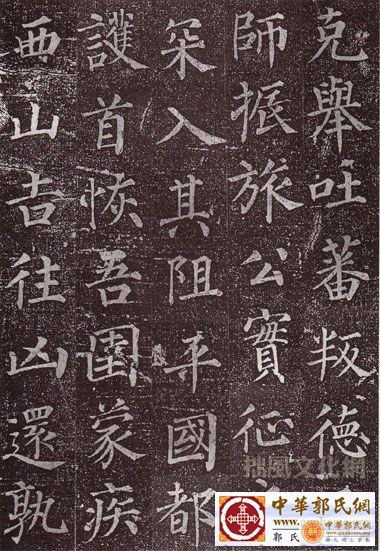 克舉吐蕃叛德
師振旅公實征
罙入其阻平國都
護首恢吾圉蒙疾
西山吉往凶還孰
拙風文化網
中華郭氏網
www.
郭氏